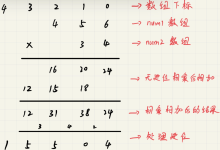 4 3 2 1 0 → 数组下标
4 5 6 → num1 数组
× 3 4 → num2 数组
16 20 24 → 无进位相乘后相加
12 15 18
12 31 38 24 → 相乘相加后的结果
3 4 2
1 5 5 0 4 → 处理进位